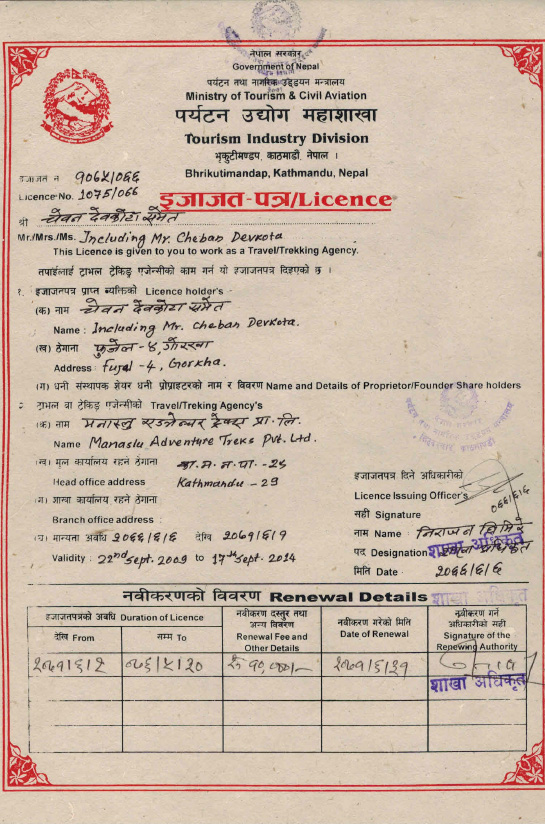 नेपाल सरकार
Government of Nepal
पर्यटन तथा नागरिक उड्डयन मन्त्रालय
Ministry of Tourism & Civil Aviation
पर्यटन उद्योग महाशाखा
Tourism Industry Division
भृकुटीमण्डप, काठमाडौं, नेपाल ।
Bhrikutimandap, Kathmandu, Nepal
इजाजत नं
Licence No. 1075/066
इजाजत-पत्र/Licence
श्री चेवन देवकोटा समेत
Mr./Mrs./Ms. Including Mr. Cheban Devkota
This Licence is given to you to work as a Travel/Trekking Agency.
तपाईंलाई ट्राभल ट्रेकिङ्ग एजेन्सीको काम गर्न यो इजाजतपत्र दिइएको छ ।
१. इजाजतपत्र प्राप्त व्यक्तिको Licence holder's -
(क) नाम चेवन देवकोटा समेत
Name : Including Mr. Cheban Devkota.
(ख) ठेगाना फुजेल - ४, गोरखा
Address : Fujel - 4, Gorkha.
(ग) धनी संस्थापक शेयर धनी प्रोप्राइटरको नाम र विवरण Name and Details of Proprietor/Founder Share holders
२ ट्राभल वा ट्रेकिङ्ग एजेन्सीको Travel/Treking Agency's
(क) नाम मनास्लु एडभेन्चर ट्रेक्स प्रा. लि.
Name Manaslu Adventure Treks Pvt. Ltd.
(ख) मूल कार्यालय रहने ठेगाना का.म.न.पा. - २९
Head office address Kathmandu - 29
(ग) शाखा कार्यालय रहने ठेगाना
Branch office address :
(घ) मान्यता अवधि २०६६/६/६ देखि २०७१/६/१
Validity : 22nd Sept. 2009 to 17th Sept. 2014
इजाजतपत्र दिने अधिकारीको
Licence Issuing Officer's
०६६/६/६
सही Signature
नाम Name : निराजन घिमिरे
पद Designation शाखा अधिकृत
मिति Date २०६६/६/६
नवीकरणको विवरण Renewal Details
शाखा अधिकृत
इजाजतपत्रको अवधि Duration of Licence
देखि From
सम्म To
नवीकरण दस्तुर तथा
अन्य विवरण
Renewal Fee and
Other Details
नवीकरण गरेको मिति
Date of Renewal
नवीकरण गर्ने
अधिकारीको सही
Signature of the
Renewing Authority
२०७१/६/२
०७६/५/३०
रु १०,०००/-
२०७१/६/२१
शाखा अधिकृत